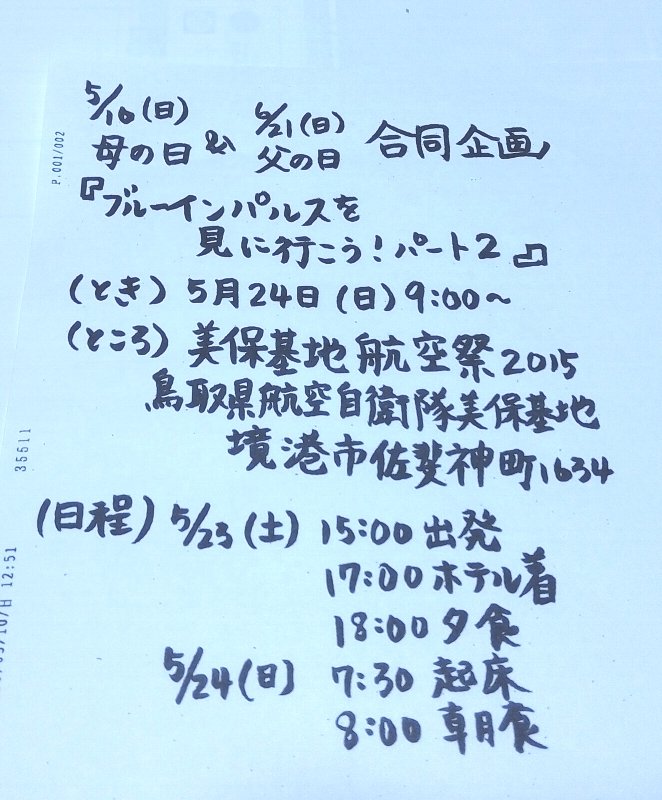 5/10(日) 6/21(日)
母の日 & 父の日 合同企画
『ブルーインパルスを
見に行こう!パート2』
(とき) 5月24日(日) 9:00〜
(ところ) 美保基地航空祭2015
鳥取県航空自衛隊美保基地
境港市佐斐神町1634
(日程) 5/23(土) 15:00 出発
17:00 ホテル着
18:00 夕食
5/24(日) 7:30 起床
8:00 朝食
P.001/002
35511
12:51